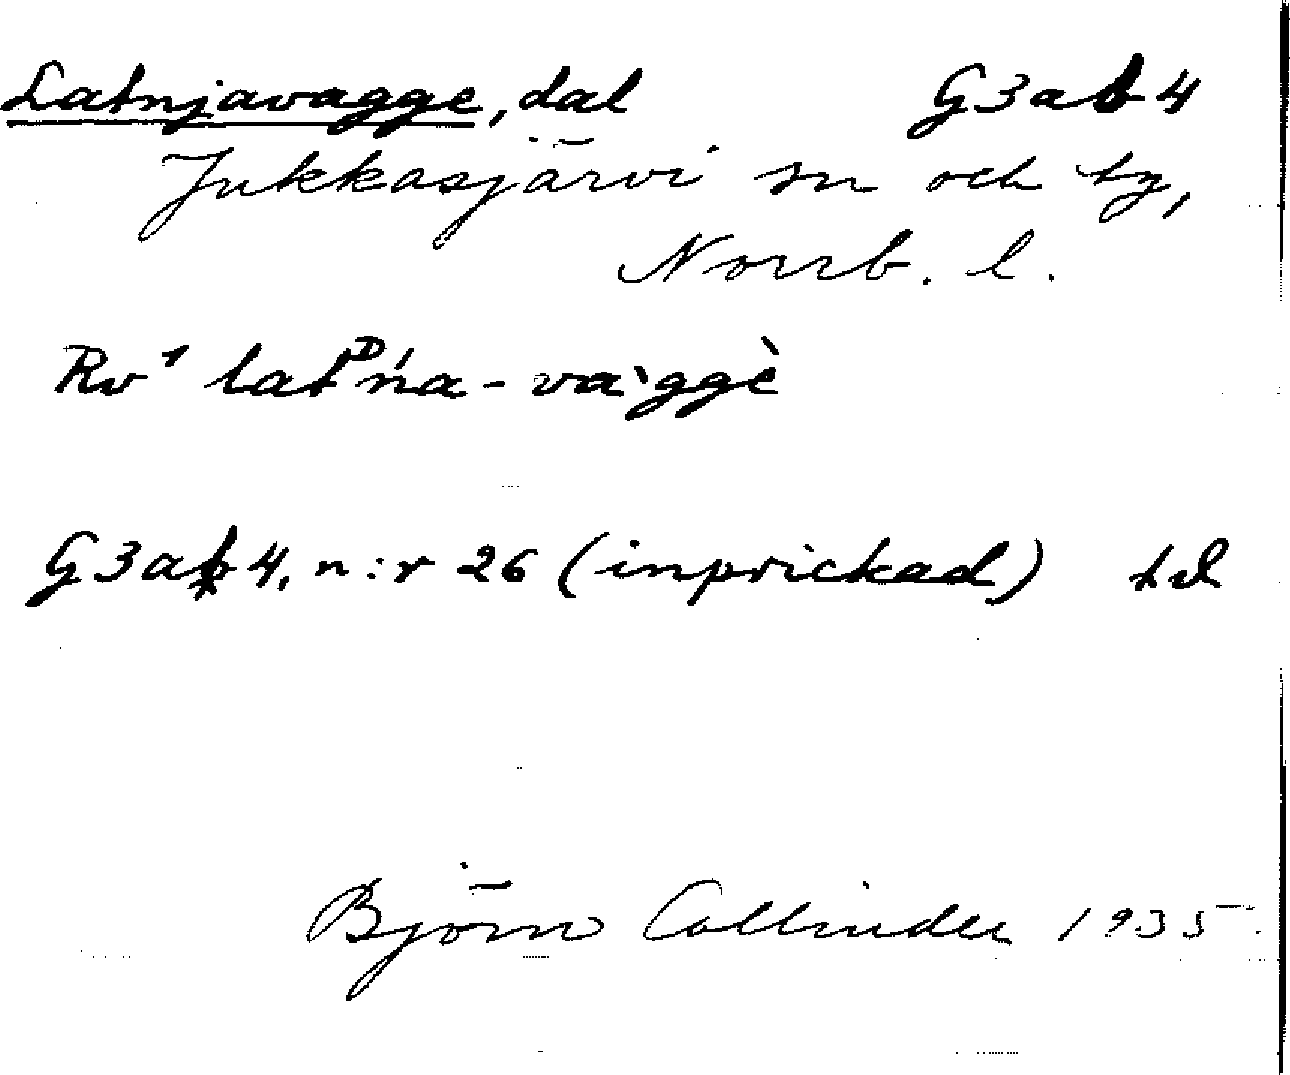 Latnjavagge, dal G3ab4
Jukkasjärvi sn och by,
Norrb. l.
Rv¹ latᴰńa-vàggè
G3ab4, n:r 26 (inprickad)
Björn Collinder 1935